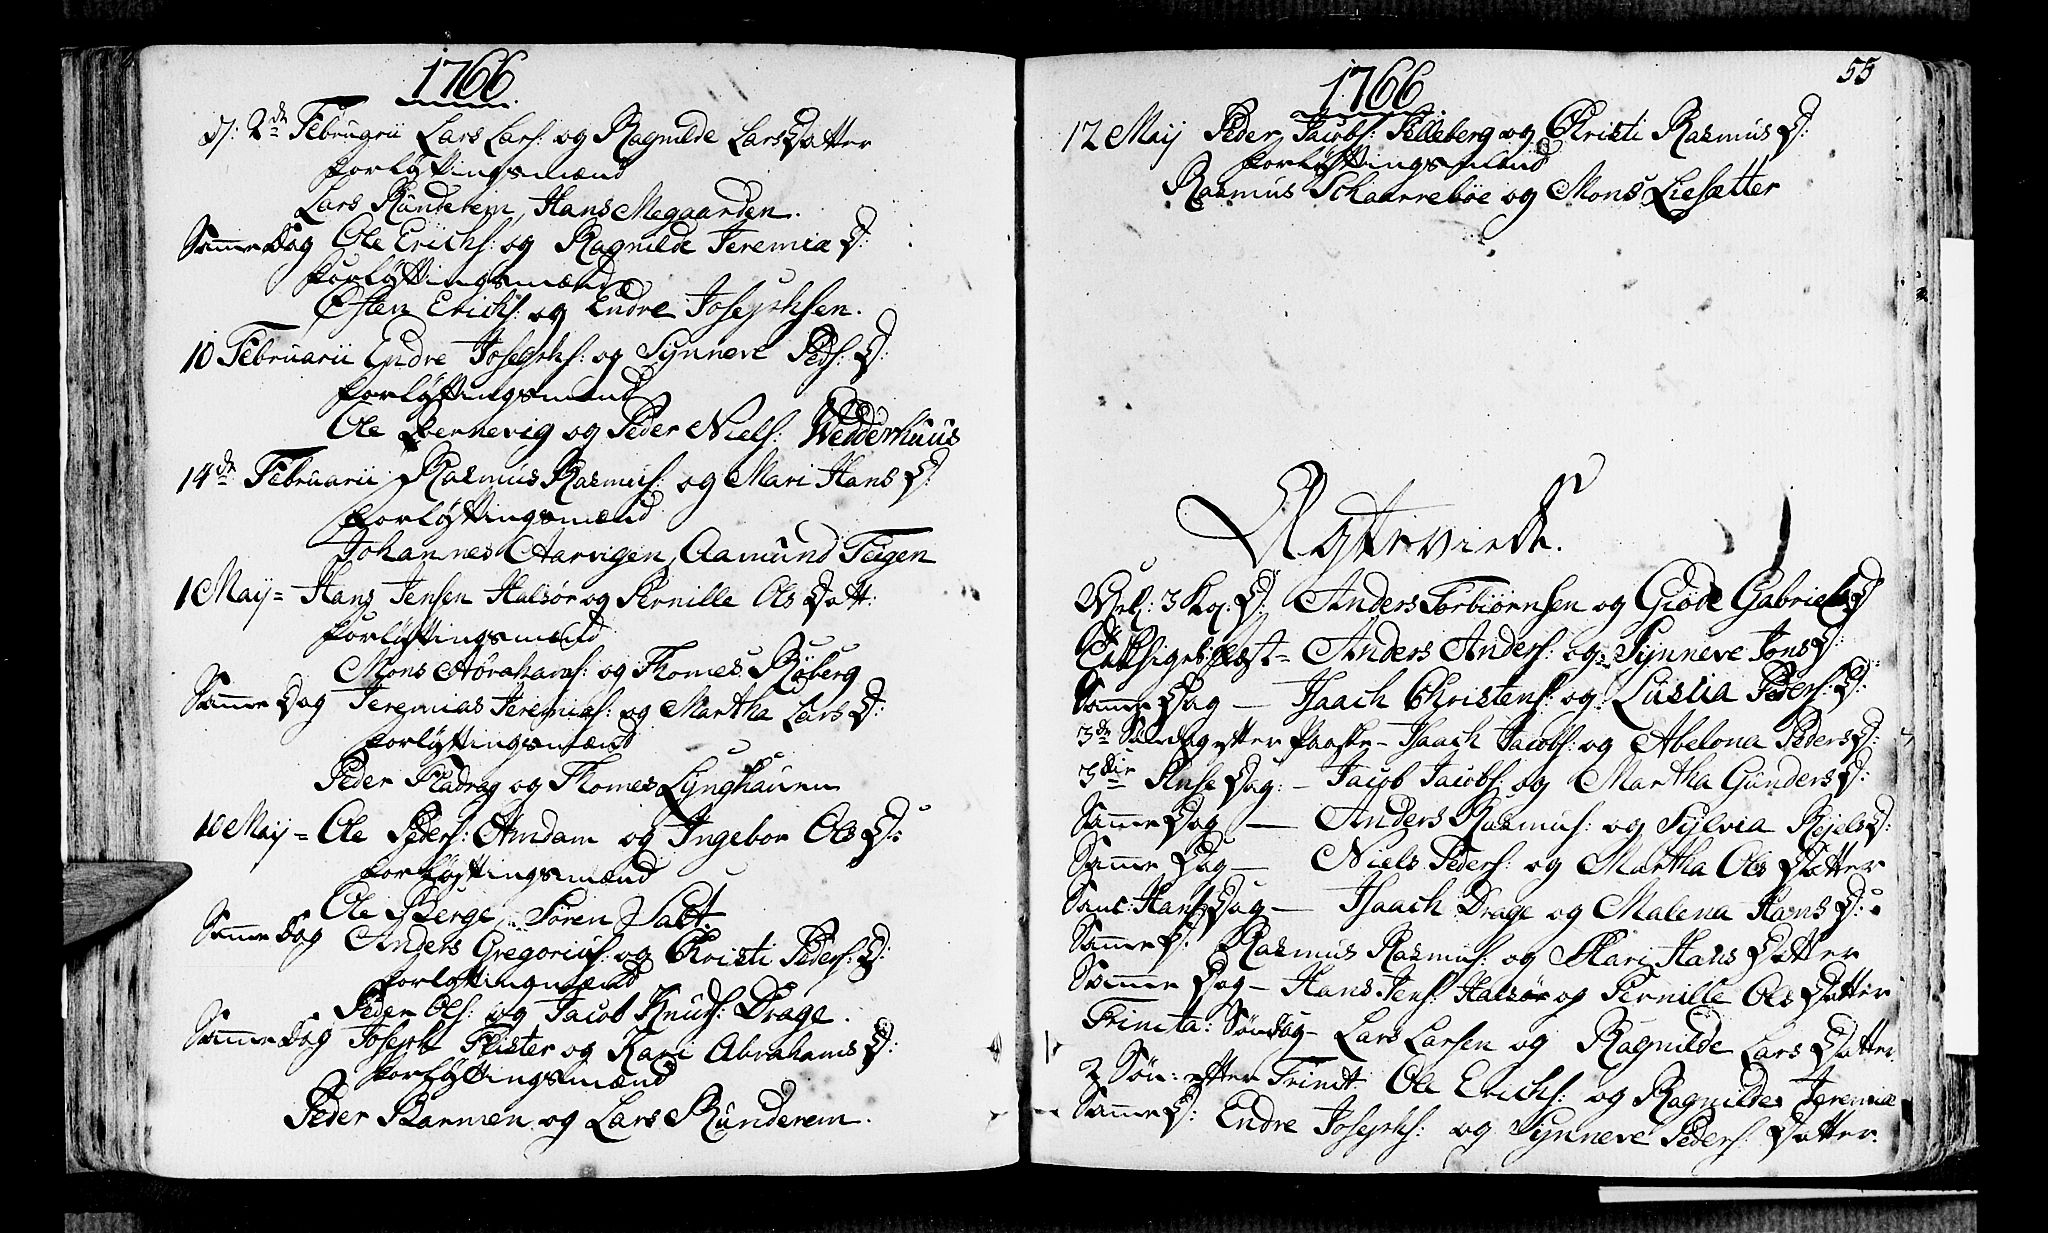 1766
d: 2den Februarii Lars Lars: og Ragnilde LarsDatter
forlÿftingsmænd
Lars Ründerem, Hans Megaarden.
Samme Dag Ole Erichs: og Ragnilde Jeremiæ D:
forlÿftingsmænd
Østen Erichs: og Endre Josephsen.
10 Februarii Endre Josephs: og Synneve Peds: D:
forlÿftingsmænd
Ole Bernevig og Peder Niels: Wedderhuus
14de Februarii Rasmus Rasmus: og Mari Hans D:
forlÿftingsmænd
Johannes Aarvigen, Aamund Teigen
1 Maÿ = Hans Jensen Halsør og Pernille Ols Datt:
forlÿftingsmænd
Mons Abrahams: og Thomes Rÿberg
Samme Dag Jeremias Jeremias: og Martha Lars D:
forlÿftingsmænd
Peder Fladrag og Thomes Lÿnghauen
10 Maÿ = Ole Peders: Amdam og Ingebor Ols D:
forlÿftingsmænd
Ole Berge, Søren Salt.
Samme Dag Anders Gregorius: og Christi Peders: D:
forlÿftingsmænd
Peder Ols: og Jacob Knuds: Drage.
Samme Dag Joseph Flister og Kari Abrahams D:
forlÿftingsmænd
Peder Rarmen og Lars Ründerem.
1766
55
12 Maÿ Peder Jacobs: Pelleberg og Christi Rasmus D:
forlÿftingsmænd
Rasmus Schaarrebøe og Mons Liesætter
Ægteviede.
Hel: 3 Kg: D: Anders Torbiørnsen og Giøde Gabriels D
Tacksigels: fæst = Anders Anders: og Synneve Jons D:
Samme Dag — Isaach Christens: og Luslia Peders: D:
3de Søndag efter Paaske – Isaach Jacobs: og Abelona Peders D:
3die Pinse Dag: – Jacob Jacobs: og Martha Gunders D:
Samme Dag — Anders Rasmus: og Sÿlvia Kejels D:
Samme Dag — Niels Peders: og Martha Ols Datter
Sanc: Hans Dag — Isaach Drage og Malena Hans D:
Samme D: Rasmus Rasmus: og Mari Hans Datter
Samme Dag – Hans Jens: Halsør og Pernille Ols Datter
Trinita: Søndag – Lars Larsen og Ragnilde Lars Datter
2 Søn: efter Trinit: Ole Erichs: og Ragnilde Jeremiæ
Samme D: Endre Josephs: og Synneve Peders: Datter.